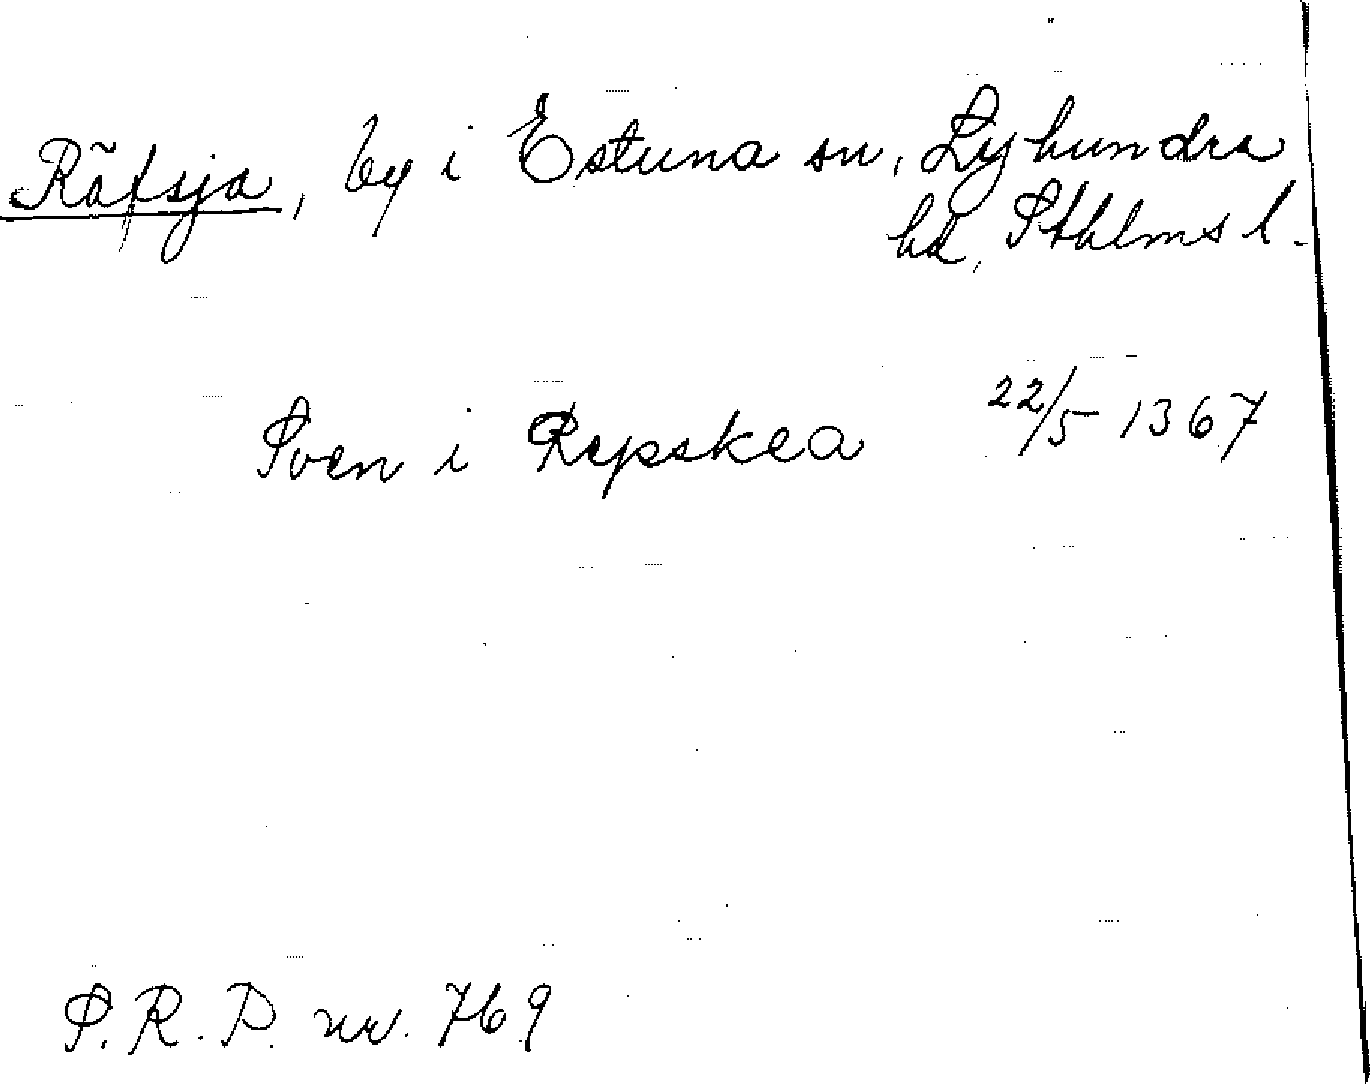 Räfsja, by i Estuna sn, Lyhundra
hd, Sthlms l.
Sven i Repskea 22/5 1367
S.R.P. nr. 769